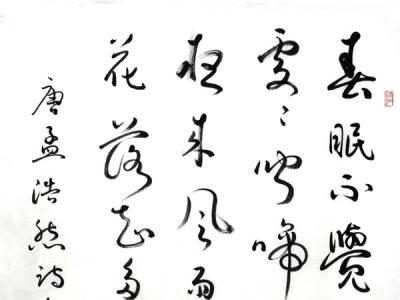 春眠不覺
處處聞啼
夜来風雨
花落知多
唐孟浩然詩